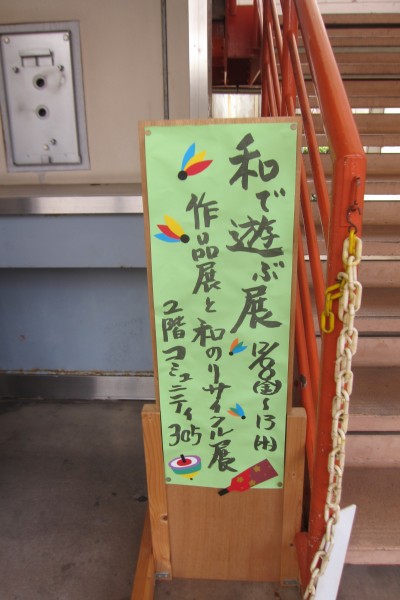 和で遊ぶ展 12/8(金)~13(水)
作品展と和のリサイクル展
2階コミュニティ305